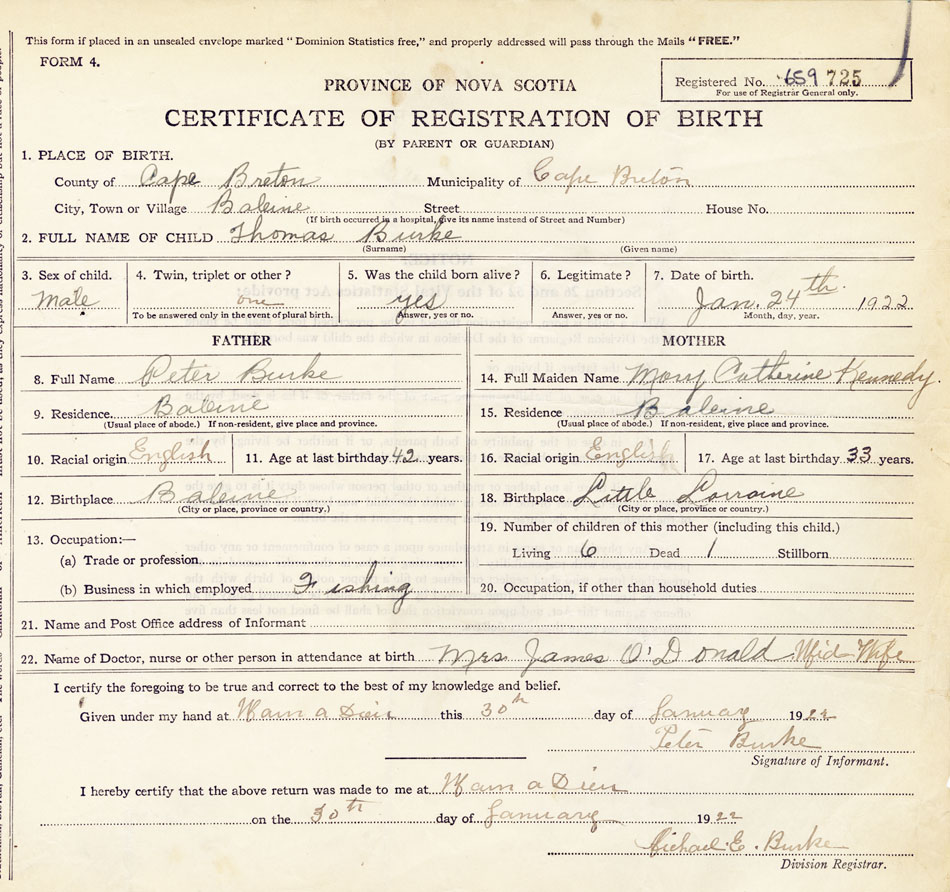 This form if placed in an unsealed envelope marked "Dominion Statistics free," and properly addressed will pass through the Mails "FREE."
FORM 4.
Registered No. 659 725
For use of Registrar General only.
PROVINCE OF NOVA SCOTIA
CERTIFICATE OF REGISTRATION OF BIRTH
(BY PARENT OR GUARDIAN)
1. PLACE OF BIRTH.
County of Cape Breton Municipality of Cape Breton
City, Town or Village Baleine Street House No.
(If birth occurred in a hospital, give its name instead of Street and Number)
2. FULL NAME OF CHILD Thomas Burke
(Surname) (Given name)
3. Sex of child. 4. Twin, triplet or other? 5. Was the child born alive? 6. Legitimate? 7. Date of birth.
Male one yes Jan. 24th. 1922
To be answered only in the event of plural birth. Answer, yes or no. Answer, yes or no. Month, day, year.
FATHER MOTHER
8. Full Name Peter Burke 14. Full Maiden Name Mary Catherine Kennedy.
9. Residence. Baleine 15. Residence Baleine
(Usual place of abode.) If non-resident, give place and province. (Usual place of abode.) If non-resident, give place and province.
10. Racial origin English 11. Age at last birthday 42 years. 16. Racial origin English 17. Age at last birthday 33 years.
12. Birthplace Baleine 18. Birthplace Little Lorraine
(City or place, province or country.) (City or place, province or country.)
19. Number of children of this mother (including this child.)
13. Occupation:—
Living 6 Dead 1 Stillborn
(a) Trade or profession
(b) Business in which employed Fishing 20. Occupation, if other than household duties
21. Name and Post Office address of Informant
22. Name of Doctor, nurse or other person in attendance at birth Mrs James O'Donald Mid Wife
I certify the foregoing to be true and correct to the best of my knowledge and belief.
Given under my hand at Main a Dieu this 30th day of January 1922
Peter Burke
Signature of Informant.
I hereby certify that the above return was made to me at Main a Dieu
on the 30th day of January 1922
Michael E. Burke
Division Registrar.